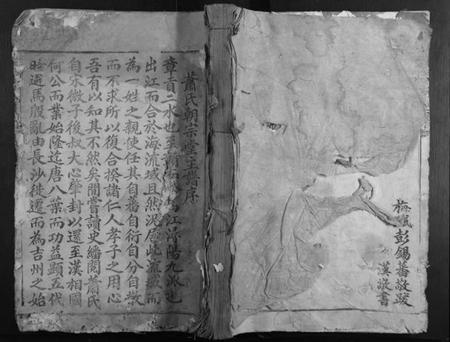 蕭氏朝宗堂主譜序
章貢二水也至
出江而合於海流域且然況居此瀛寰而
為一姓之親使任其自蕃自衍自分自散
而不求所以復合揆諸仁人孝子之用心
吾有以知其不然矣間嘗讀史繙閱蕭氏
自宋微子後叔大心肇封以還至漢相國
何公而葉始隆迄唐八葉而功益顯五代
時遭馬殷亂由長沙徙遷而為吉州之始
彭錫蕃敬跋
漢敬書